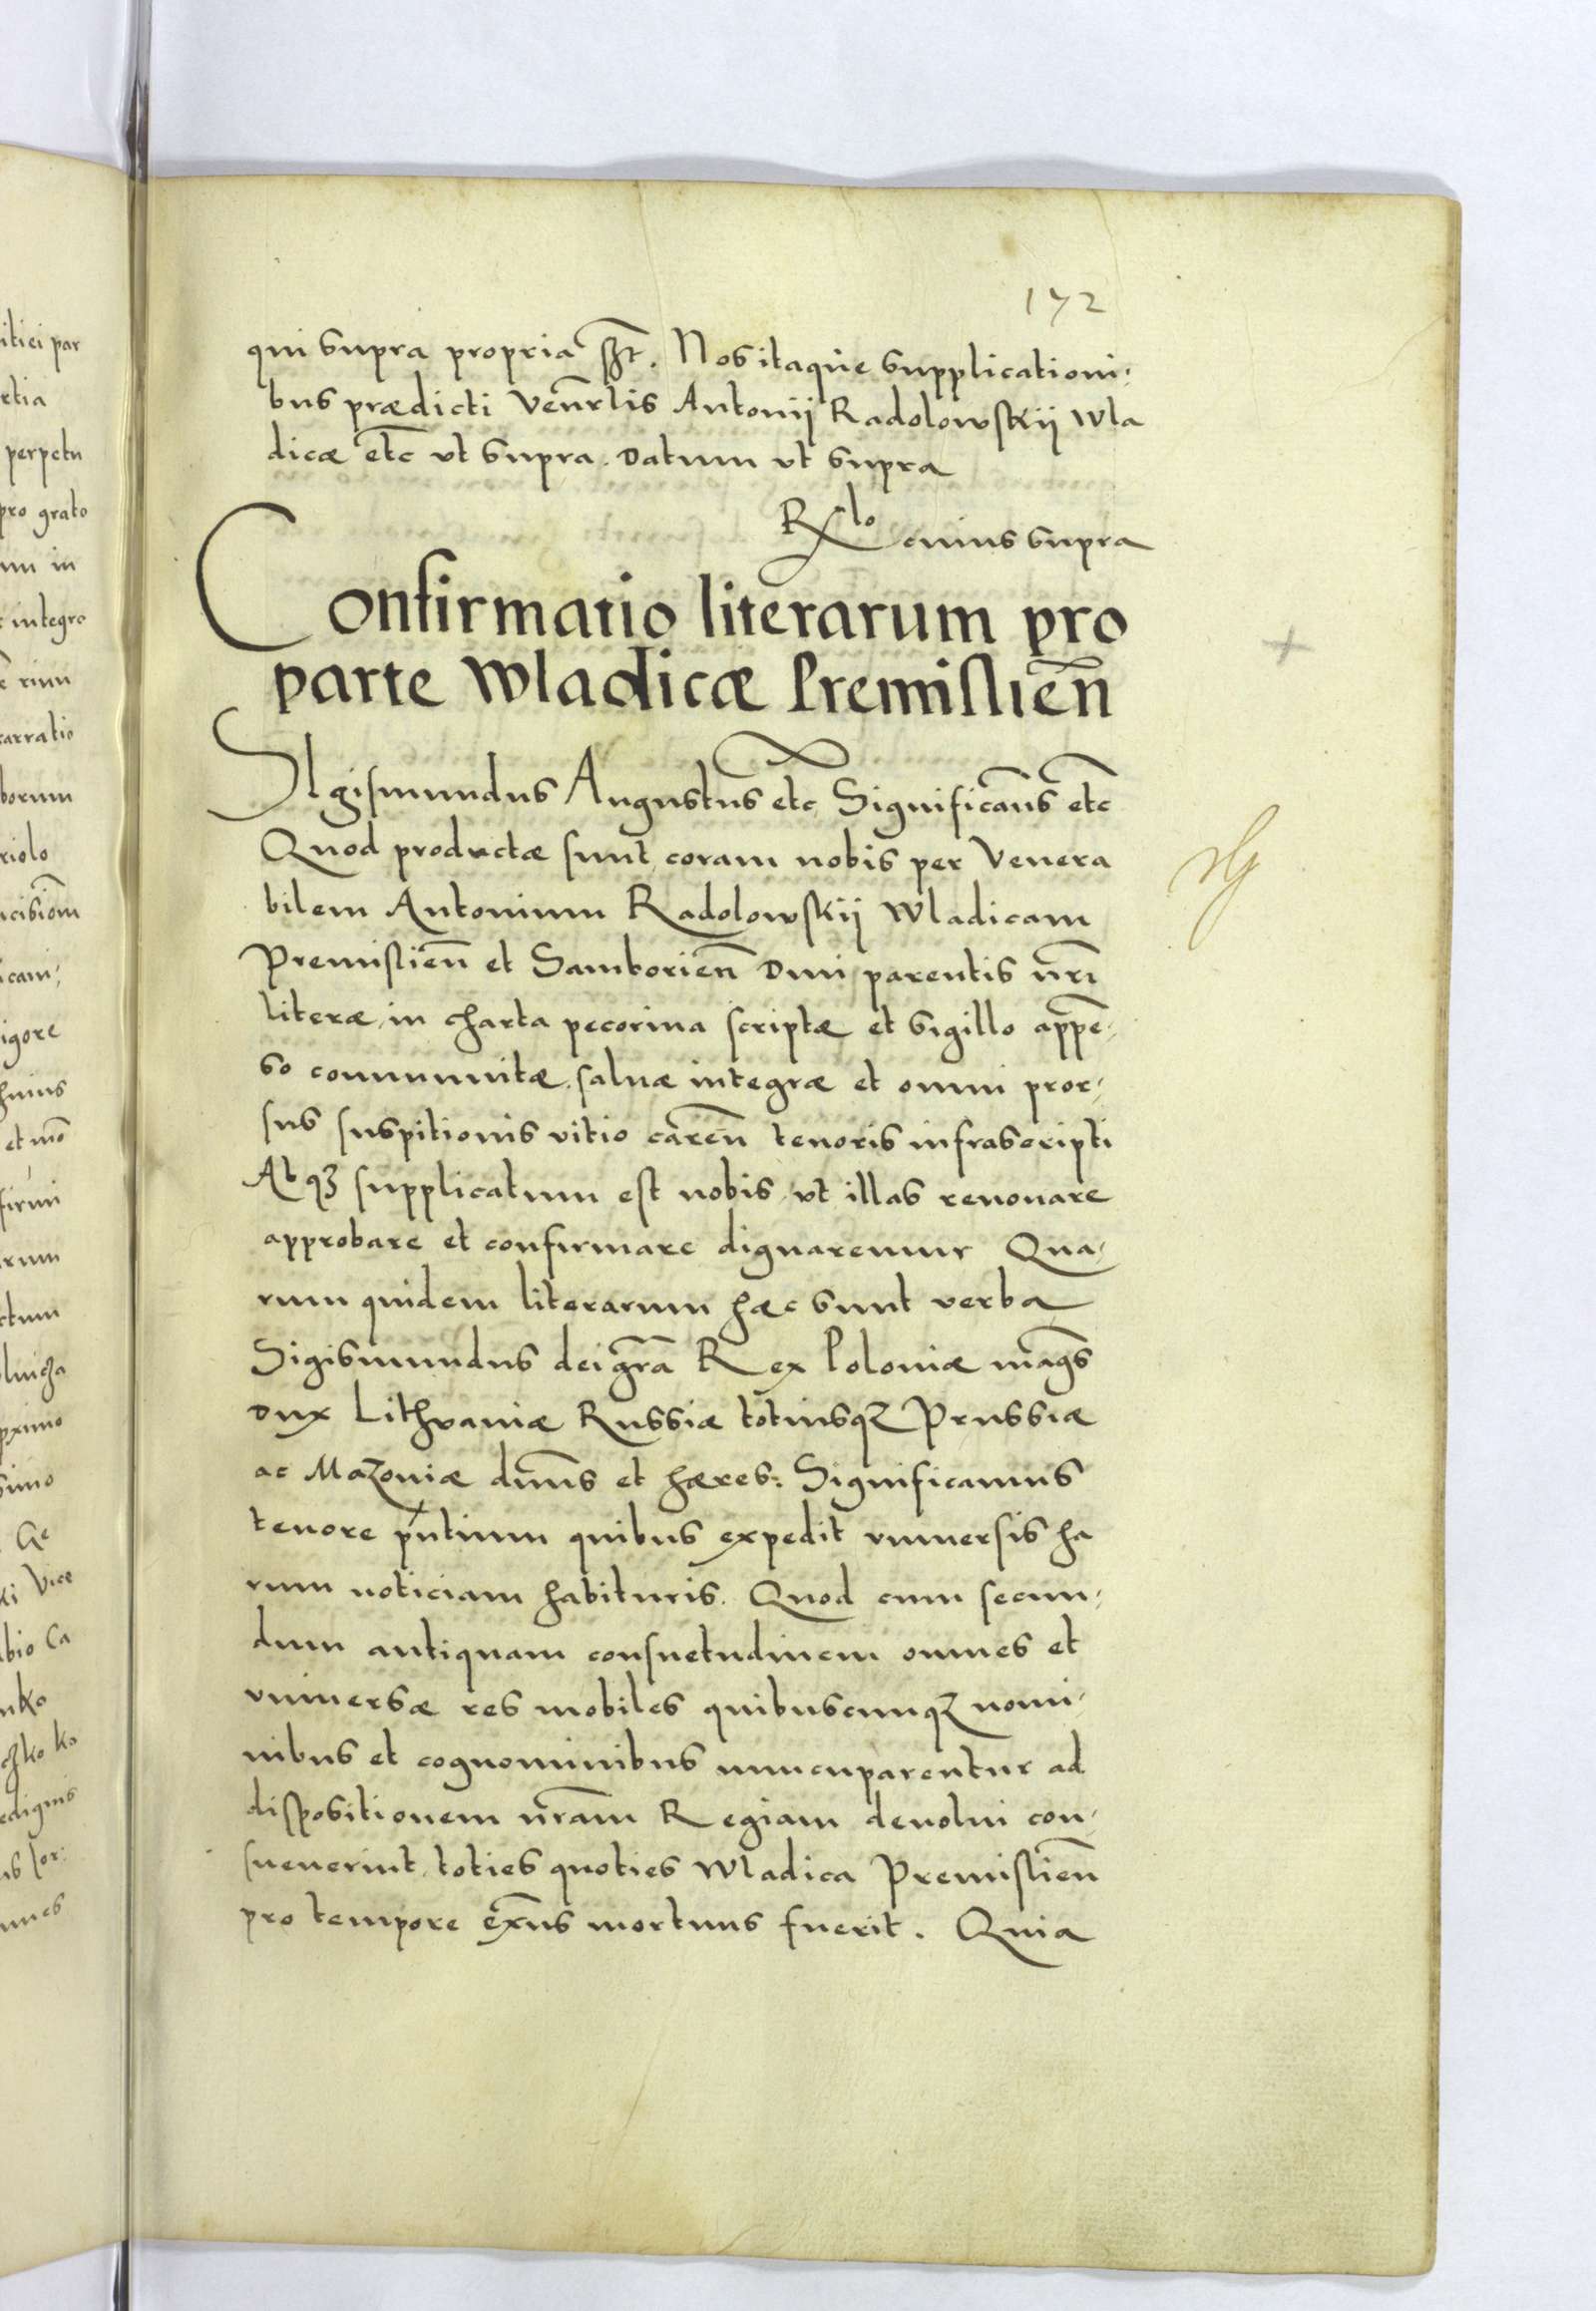 172
qui supra propria sst. Nos itaque supplicationi-
bus prædicti Venerlis Antonij Radolowskij Wla
dicæ etc vt supra. Datum vt supra
Rlo cuius supra
Confirmatio literarum pro
parte Wladicæ Premislien̄
SIgismundus Augustus etc Significam̄s etc
Quod productæ sunt coram nobis per Venera
bilem Antonium Radolowskij Wladicam
Premislien̄ et Samborien̄ Dni parentis nr̄i
literæ in charta pecorina scriptæ et sigillo appē-
so communitæ. saluæ integræ et omni pror-
sus suspitionis vitio caren̄ tenoris infrascripti
Atqꝫ supplicatum est nobis vt illas renouare
approbare et confirmare dignaremur Qua-
rum quidem literarum hæc sunt verba
Sigismundus dei gr̄a Rex Poloniæ maḡs
Dux Lithvaniæ Russiæ totiusqꝫ Prussiæ
ac Mazoniæ dn̄s et hæres: Significamus
tenore pn̄tium quibus expedit vniuersis ha
rum noticiam habituris. Quod cum secun-
dum antiquam consuetudinem omnes et
vniuersæ res mobiles quibuscunqꝫ nomi-
nibus et cognominibus nuncuparentur ad
dispositionem nr̄am Regiam deuolui con-
sueuerint toties quoties Wladica Premislien̄
pro tempore ex̄ns mortuus fuerit. Quia
itiei par
rtia
perpetu
pro grato
um in
integro
rium
arratio
borum
riolo
ncisiom̄
icam-
igore
huius
et mō
firmi
rum
ctum
pximo
simo
Ge
ki Vice
bio Ca
nko
ko